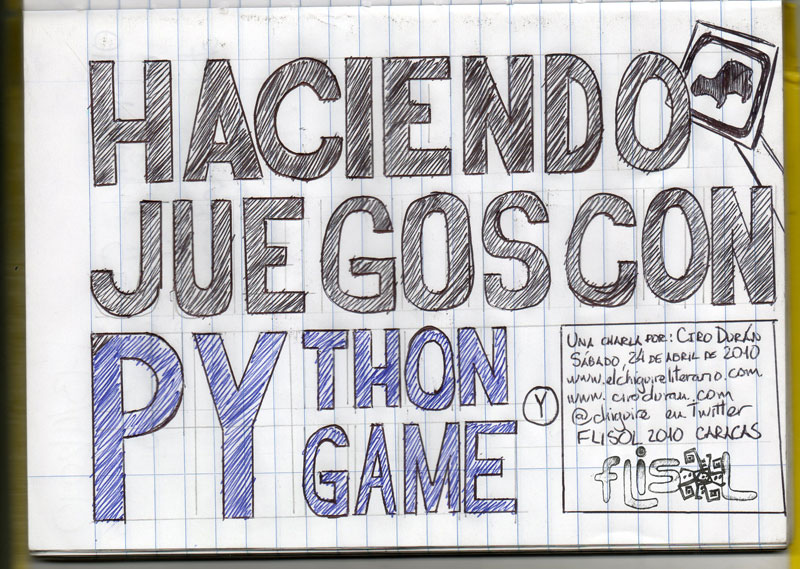 HACIENDO
JUEGOS CON
PY THON
GAME
Y
UNA CHARLA POR: CIRO DURÁN
SÁBADO 24 DE ABRIL DE 2010
www.elchiguireliterario.com
www.ciroduran.com
@chiguire en Twitter
FLISOL 2010 CARACAS
fLisoL